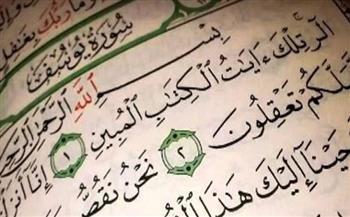 وَمَا رَبُّكَ بِغَٰفِلٍ
سُورَةُ يُوسُفَ
بِسْمِ ٱللَّهِ ٱلرَّحْمَٰنِ ٱلرَّحِيمِ
الٓر تِلْكَ ءَايَٰتُ ٱلْكِتَٰبِ ٱلْمُبِينِ ١ إِنَّآ أَنزَ
لَّكُمْ تَعْقِلُونَ ٢ نَحْنُ نَقُصُّ
حَيْنَآ إِلَيْكَ هَٰذَا